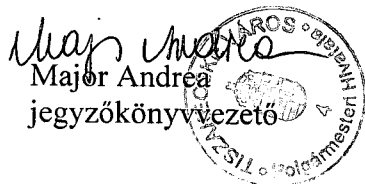 Major Andrea
Major Andrea
jegyzőkönyvvezető
VÁROS Polgármesteri Hivatala
4